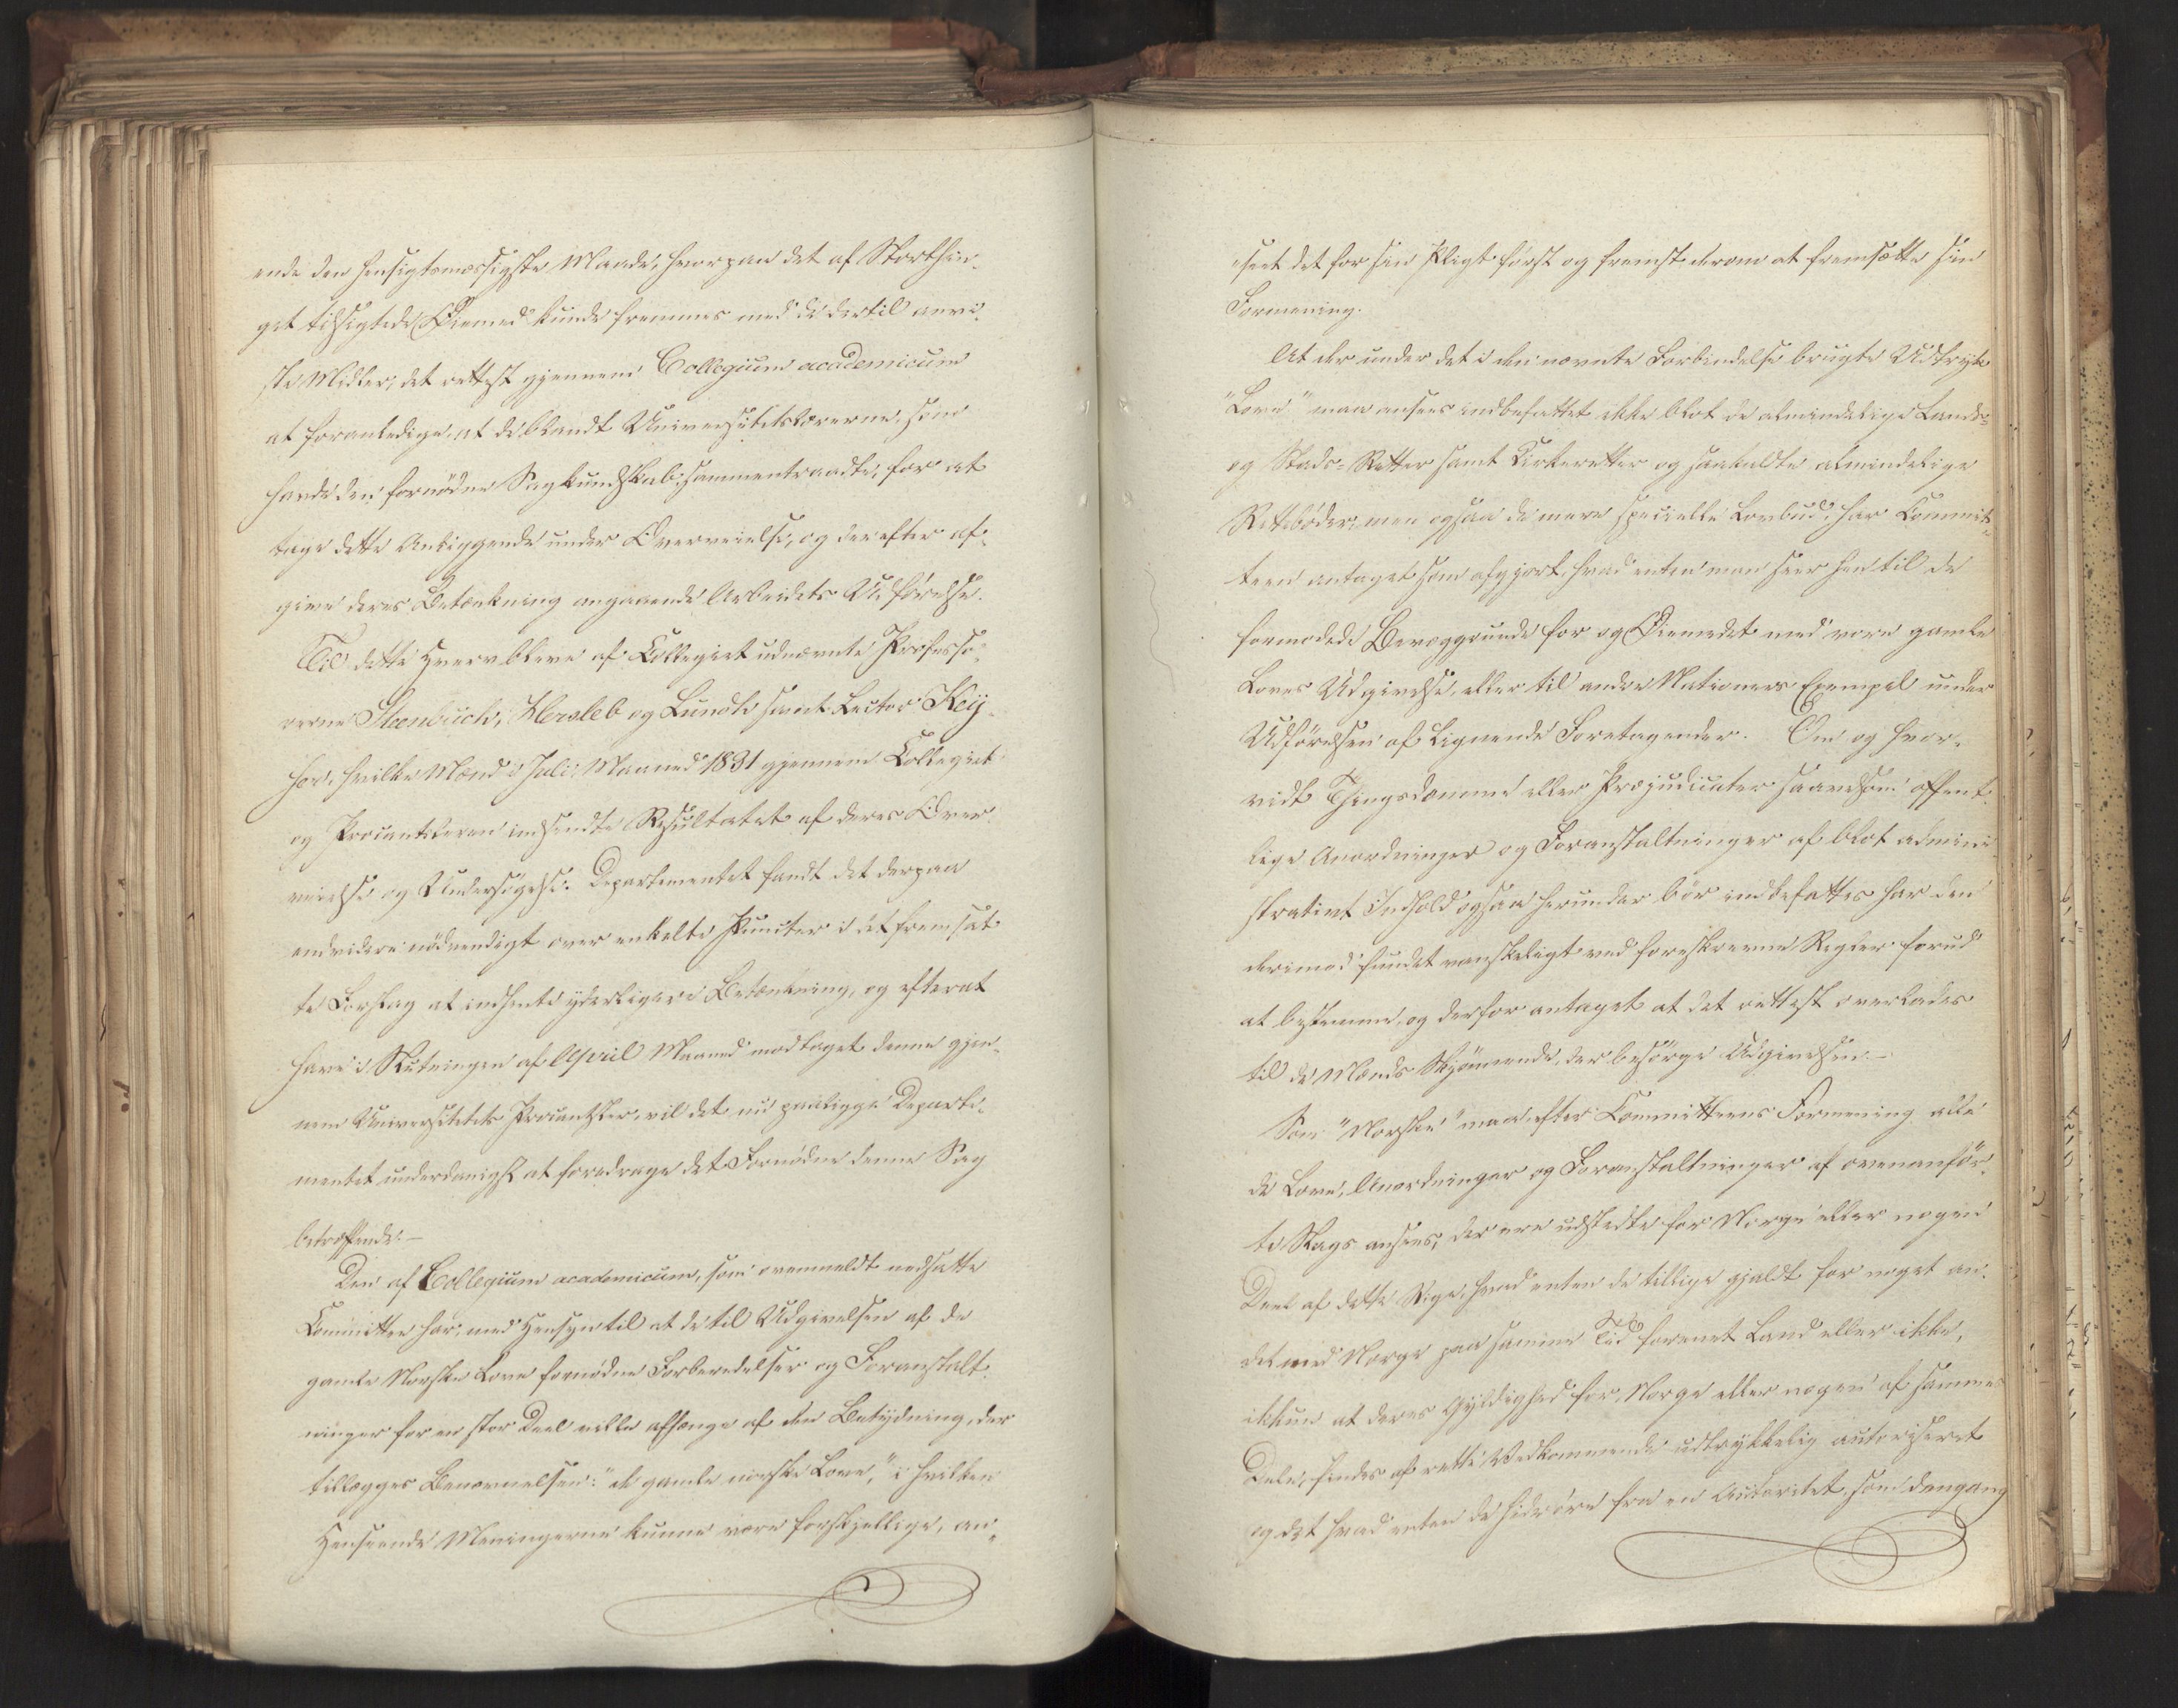 ende den hensigtsmæssigste Maade, hvorpaa det af Storthin-
get tilsigtede Øiemed kunde fremmes med de dertil anvi-
ste Midler, det rettest gjennem Collegium academicum
at foranledige, at de blandt Universitetslærerne, som
havde den fornødne Sagkundskab, sammentraadte, for at
tage dette Anliggende under Overveielse, og derefter af-
give deres Betænkning angaaende Arbeidets Udførelse.
Til dette Hverv bleve af Collegiet udnævnte Professo-
rerne Steenbuch, Hersleb og Lundh samt Lector Key-
ser, hvilke Mænd i Juli Maaned 1831 gjennem Collegiet
og Procantsleren indsendte Resultatet af deres Over-
veielse og Undersøgelse. Departementet fandt det derpaa
endvidere nødvendigt over enkelte Puncter i det fremsat-
te Forslag at indhente yderligere Betænkning, og efterat
have i Slutningen af April Maaned modtaget denne gjen-
nem Universitetets Procantsler, vil det nu paaligge Departe-
mentet underdanigst at foredrage det Fornødne denne Sag
betræffende.—
Den af Collegium academicum, som ovenmeldt nedsatte
Committee har, med Hensyn til at de til Udgivelsen af de
gamle Norske Love fornødne Forberedelser og Foranstalt-
ninger for en stor Deel ville afhænge af den Betydning, der
tillægges Benævnelsen: "de gamle norske Love," i hvilken
Henseende Meningerne kunne være forskjellige, an-
seet det for sin Pligt først og fremst derom at fremsætte sin
Formening.
At der under det i den nævnte Forbindelse brugte Udtryk
"Love" maa ansees indbefattet ikke blot de almindelige Lands-
og Stads-Retter samt Kirkeretter og saakaldte almindelige
Retsbøder, men ogsaa de mere specielle Lovbud, har Commit-
teen antaget som afgjort, hvad enten man seer hen til de
formodede Bevæggrunde for og Øiemedet med vore gamle
Loves Udgivelse, eller til andre Nationers Exempel under
Udførelsen af lignende Foretagender. Om og hvor-
vidt Thingsdomme eller Præjudicater saavelsom offent-
lige Anordninger og Foranstaltninger af blot admini-
strativt Indhold ogsaa herunder bør indbefattes har den
derimod fundet vanskeligt ved foreskrevne Regler forud
at bestemme, og derfor antaget at det rettest overlades
til de Mænds Skjønnende, der besørge Udgivelsen.—
Som "Norske" maa efter Committeens Formening alle
de Love, Anordninger og Foranstaltninger af ovenanfør-
te Slags ansees, der ere udstedte for Norge eller nogen
Deel af dette Rige, hvad enten de tillige gjaldt for noget an-
det med Norge paa samme Tid forenet Land eller ikke,
ikkun at deres Gyldighed for Norge eller nogen af sammes
Dele, findes af rette Vedkommende udtrykkelig autoriseret
og det hvad enten de hidrøre fra en Autoritet, som dengang